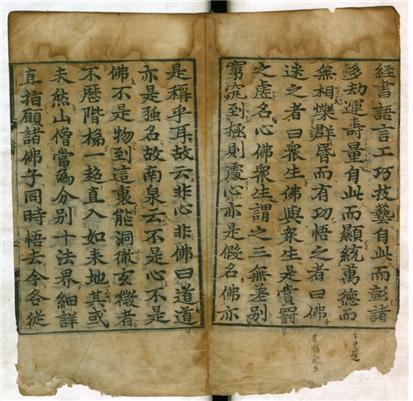 經書語言工巧技藝自此而彰諸
劫運壽量有此而顯統萬德而
無相爍群昏而有功悟之者曰佛
迷之者曰衆生佛與衆生是賞罰
之虛名心佛衆生謂之三無差別
窮究到極則處心亦是假名佛亦
是稱乎耳故云非心非佛曰道道
亦是强名故南泉云不是心不是
佛不是物到這裏能洞徹玄微者
不歷階梯一超直入如未地其或
未然山僧當爲分別十法界細詳
直指願諸佛子同時悟去令各從